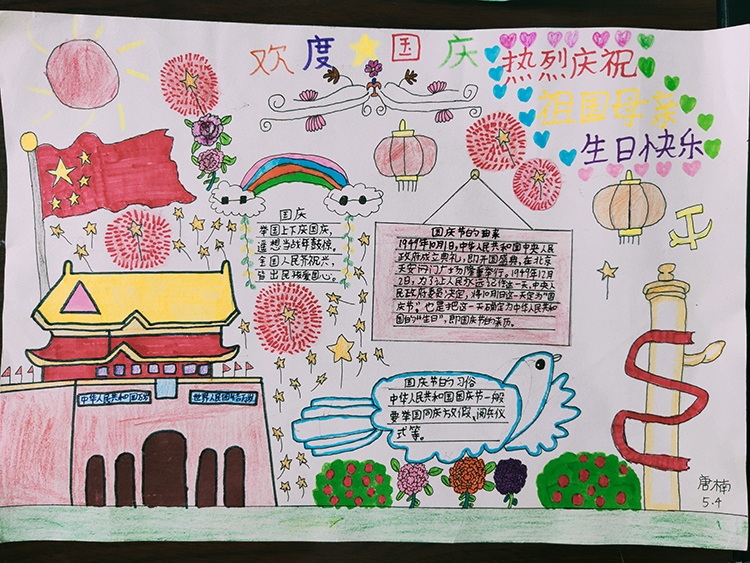 欢度国庆
热烈庆祝
祖国母亲
生日快乐
国庆
举国上下庆国庆,
遥想当战年鼓惊。
全国人民齐祝兴,
皆出民族爱国心。
国庆节的由来
1949年10月1日,中华人民共和国中央人民
政府成立典礼,即开国盛典,在北京
天安门广场隆重举行。1949年12月
2日,为了让人民永远记住这一天,中央人
民政府委员决定,将10月1日这一天定为"国
庆节"。也是把这一天确定为中华人民共和
国的"生日",即国庆节的来历。
国庆节的习俗
中华人民共和国国庆节一般
要举国同庆放假、阅兵仪
式等。
中华人民共和国万岁
世界人民团结万岁
唐楠
5.4